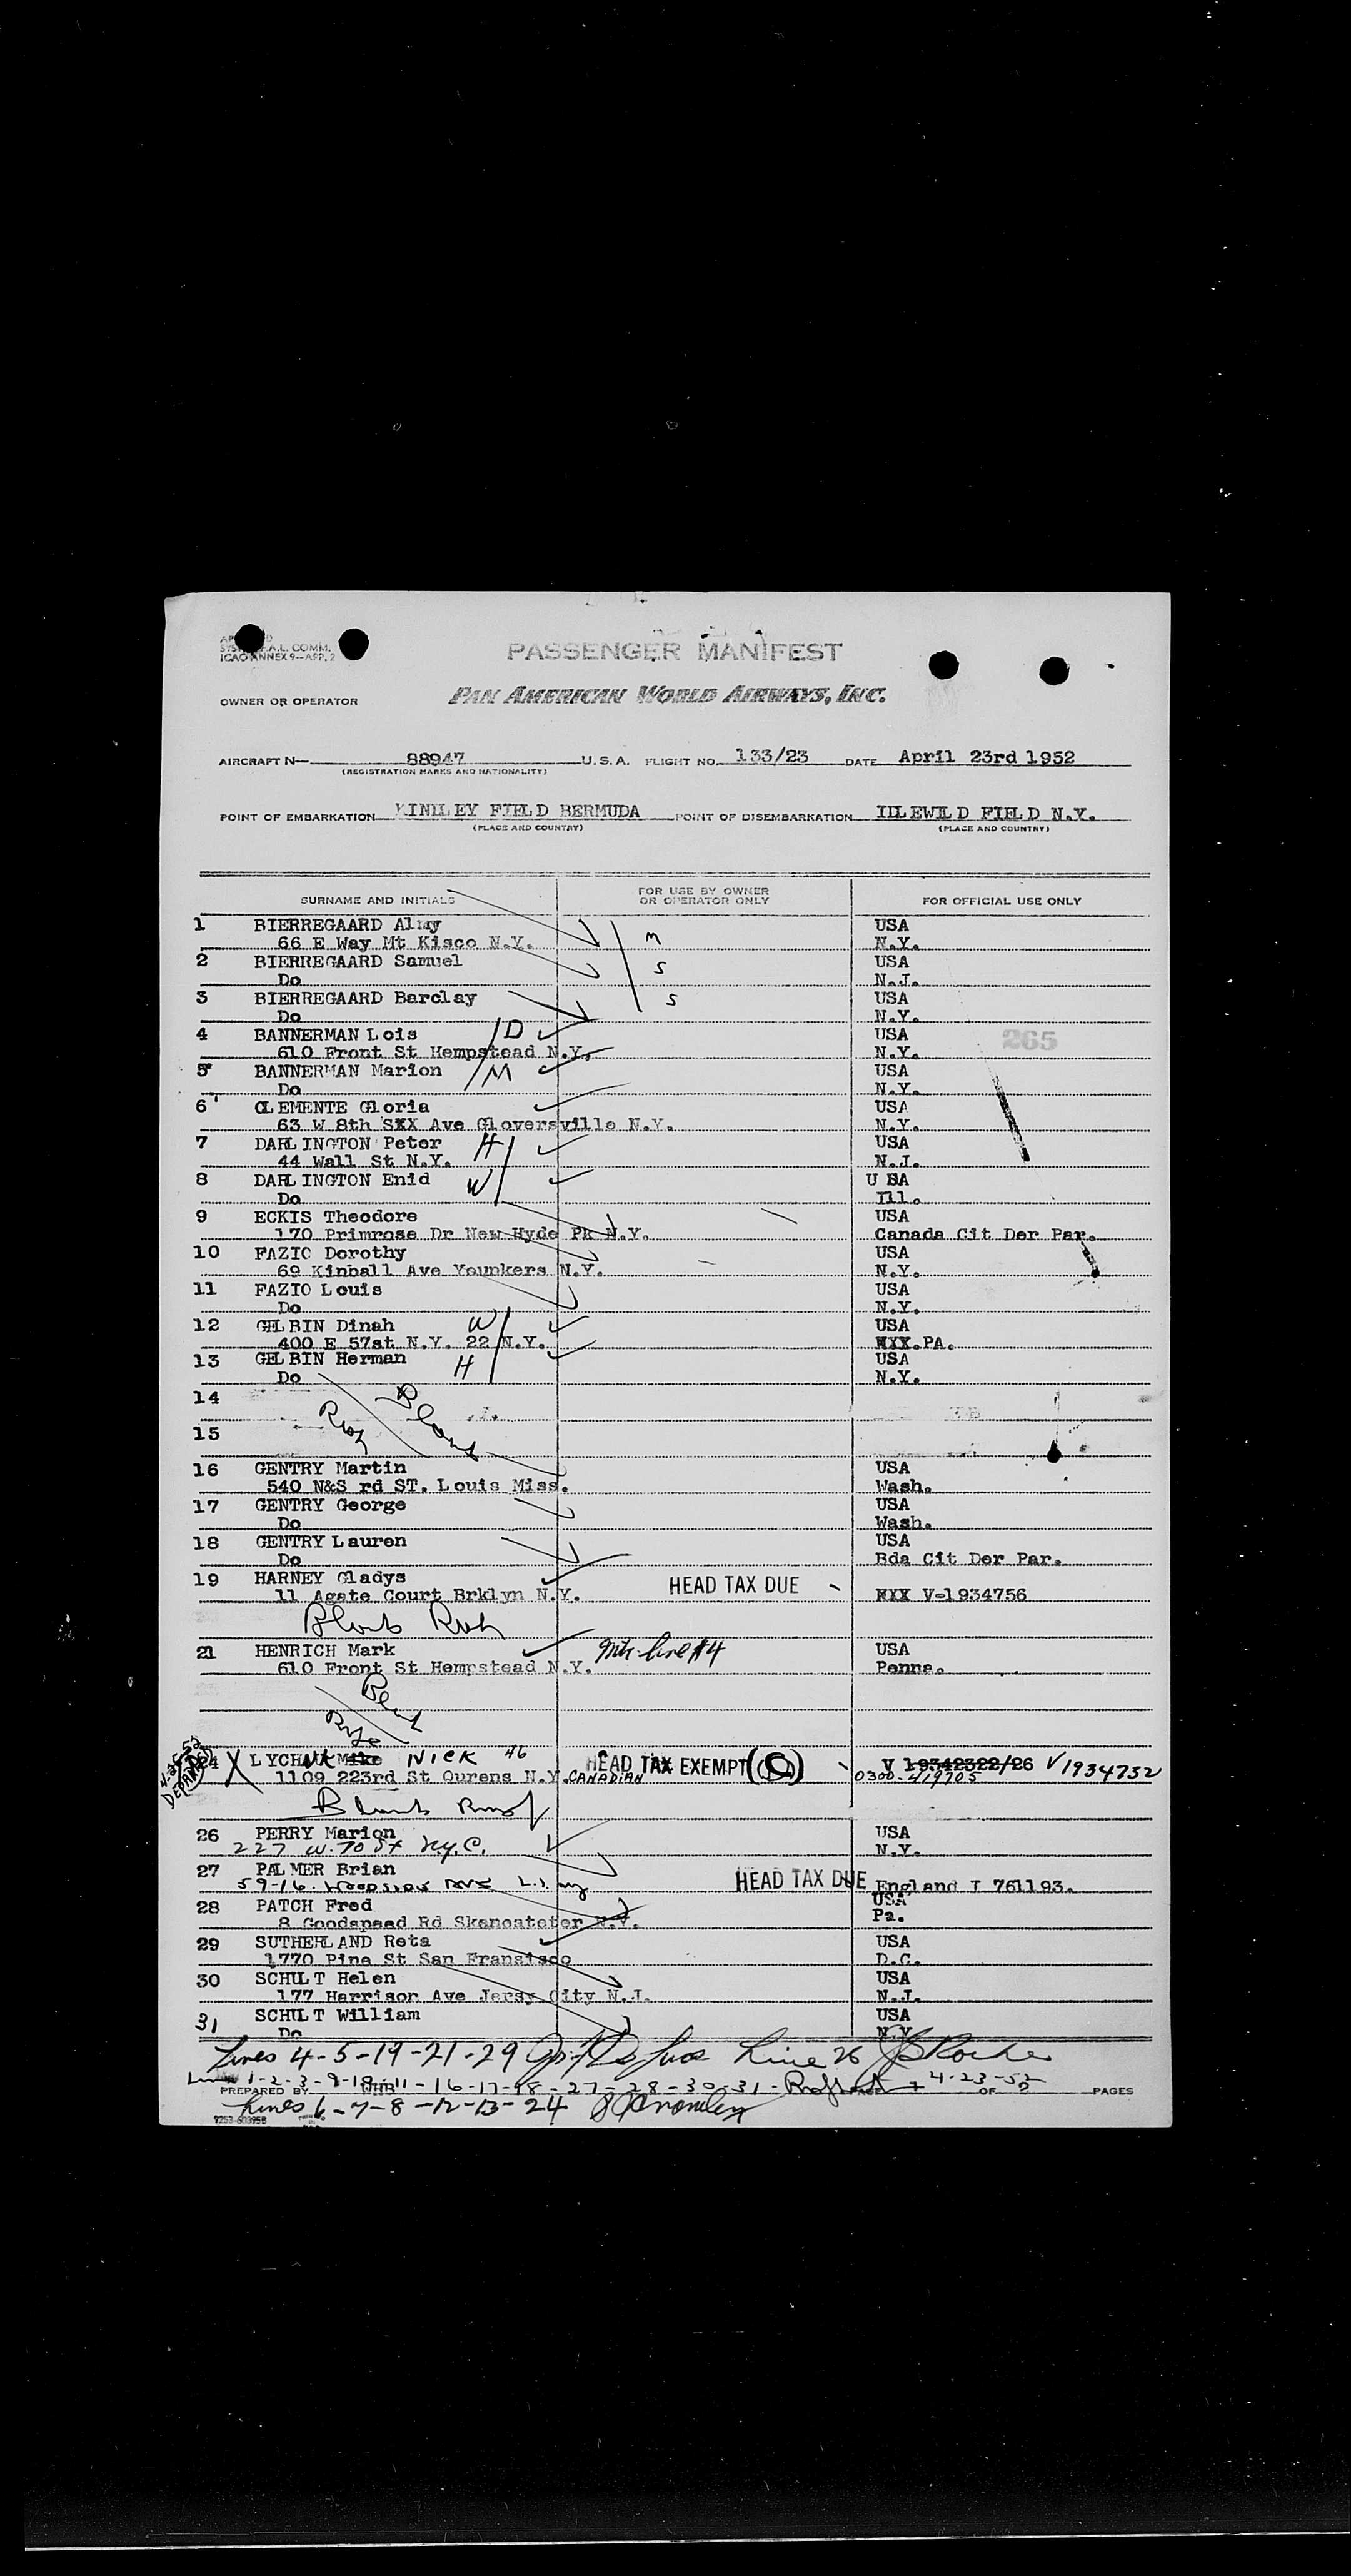 A.L. COMM.
ICAO ANNEX 9—APP. 2
PASSENGER MANIFEST
OWNER OR OPERATOR PAN AMERICAN WORLD AIRWAYS, INC.
AIRCRAFT N— 88947 U.S.A. FLIGHT NO. 133/23 DATE April 23rd 1952
(REGISTRATION MARKS AND NATIONALITY)
POINT OF EMBARKATION KINDLEY FIELD BERMUDA POINT OF DISEMBARKATION IDLEWILD FIELD N.Y.
(PLACE AND COUNTRY) (PLACE AND COUNTRY)
SURNAME AND INITIALS FOR USE BY OWNER OR OPERATOR ONLY FOR OFFICIAL USE ONLY
1 BIERREGAARD Almy USA
66 E Way Mt Kisco N.Y. M N.Y.
2 BIERREGAARD Samuel S USA
Do N.J.
3 BIERREGAARD Barclay S USA
Do N.Y.
4 BANNERMAN Lois D USA 265
610 Front St Hempstead N.Y. N.Y.
5 BANNERMAN Marion M USA
Do N.Y.
6 CLEMENTE Gloria USA
63 W 8th SXX Ave Gloversville N.Y. N.Y.
7 DARLINGTON Peter H USA
44 Wall St N.Y. N.J.
8 DARLINGTON Enid W U SA
Do Ill.
9 ECKIS Theodore USA
170 Primrose Dr New Hyde Pk N.Y. Canada Cit Der Par.
10 FAZIO Dorothy USA
69 Kinball Ave Younkers N.Y. N.Y.
11 FAZIO Louis USA
Do N.Y.
12 GELBIN Dinah W USA
400 E 57st N.Y. 22 N.Y. NXX.PA.
13 GELBIN Herman H USA
Do N.Y.
14 Blank
15
16 GENTRY Martin USA
540 N&S rd ST. Louis Miss. Wash.
17 GENTRY George USA
Do Wash.
18 GENTRY Lauren USA
Do Bda Cit Der Par.
19 HARNEY Gladys HEAD TAX DUE
11 Agate Court Brklyn N.Y. NXX V-1934756
Blank
21 HENRICH Mark line #4 USA
610 Front St Hempstead N.Y. Penna.
Blank
24 X LYCHUK Mike NICK 46 HEAD TAX EXEMPT (C) V 19342322/26 V1934732
1109 223rd St Qurens N.Y. CANADIAN 0300-419705
Blank
26 PERRY Marion USA
227 W. 70 St N.Y.C. N.Y.
27 PALMER Brian HEAD TAX DUE
59-16 Woodside Ave L.I. NY England I 761193.
28 PATCH Fred USA
8 Goodspeed Rd Skaneateter N.Y. Pa.
29 SUTHERLAND Reta USA
1770 Pine St San Fransisco D.C.
30 SCHULT Helen USA
177 Harrison Ave Jersy City N.J. N.J.
31 SCHULT William USA
Do N.Y.
Lines 4-5-19-21-29 Line 26
PREPARED BY 11-16-17-18-27-28-30-31 4-23-52 OF 2 PAGES
Lines 6-7-8-12-13-24